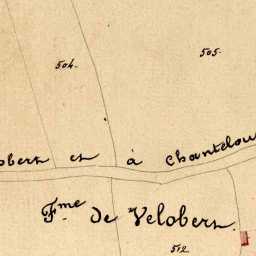 504.
505.
obert et à Chantelou
F.me De Velobert.
512